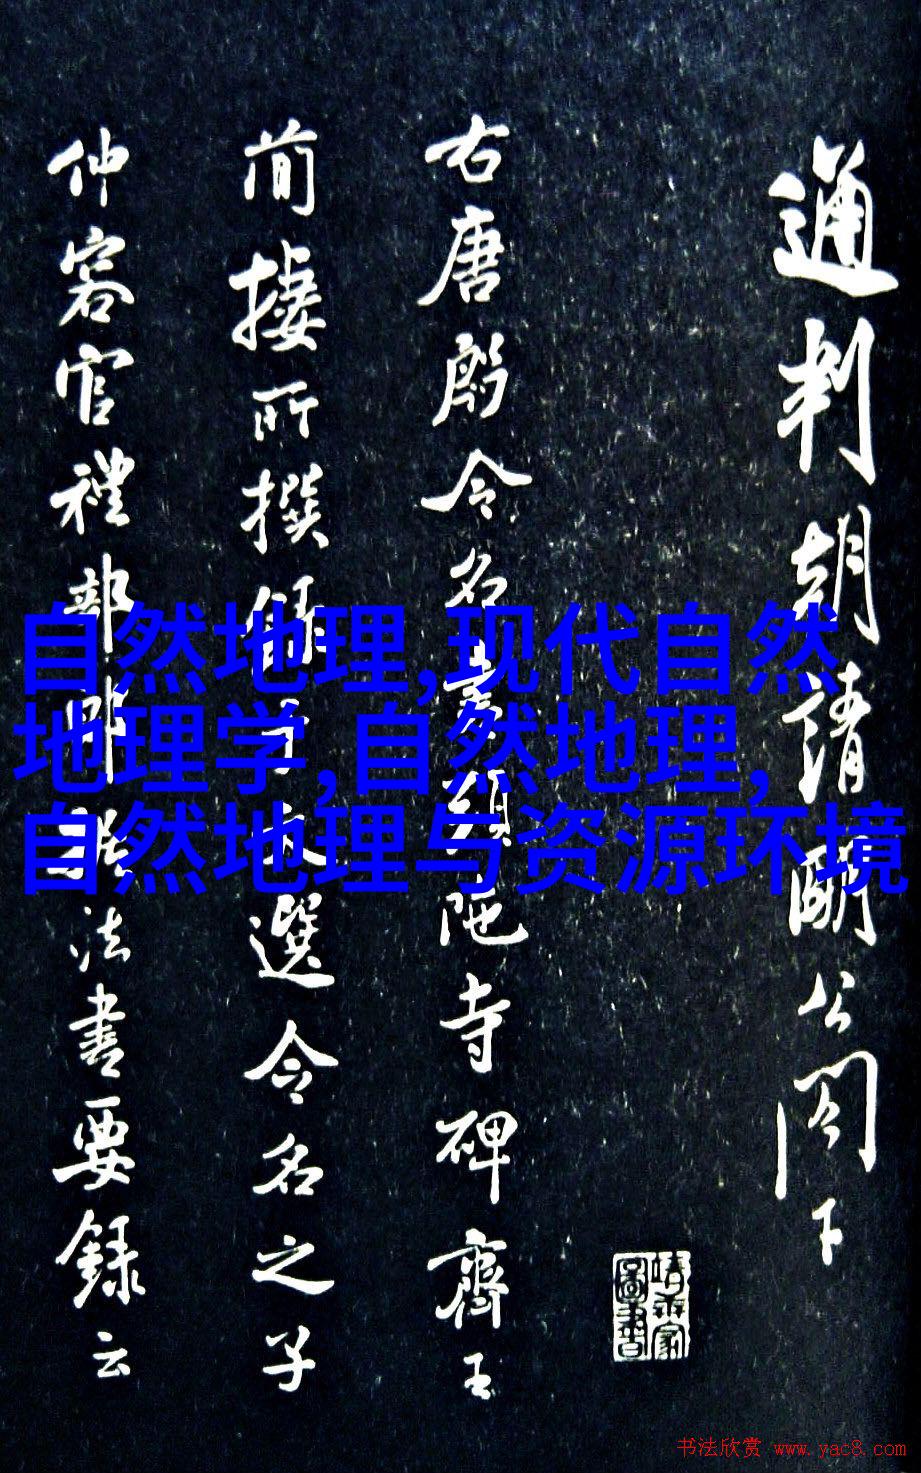 通判朝請公閣下
右唐殷令名書頭陁寺碑齊王
簡棲所撰錄于文選令名之子
仲容官禮部郎法書要録云
自然地理,现代自然
地理学,自然地理,
自然地理与资源环境
书法欣赏 www.yac8.com